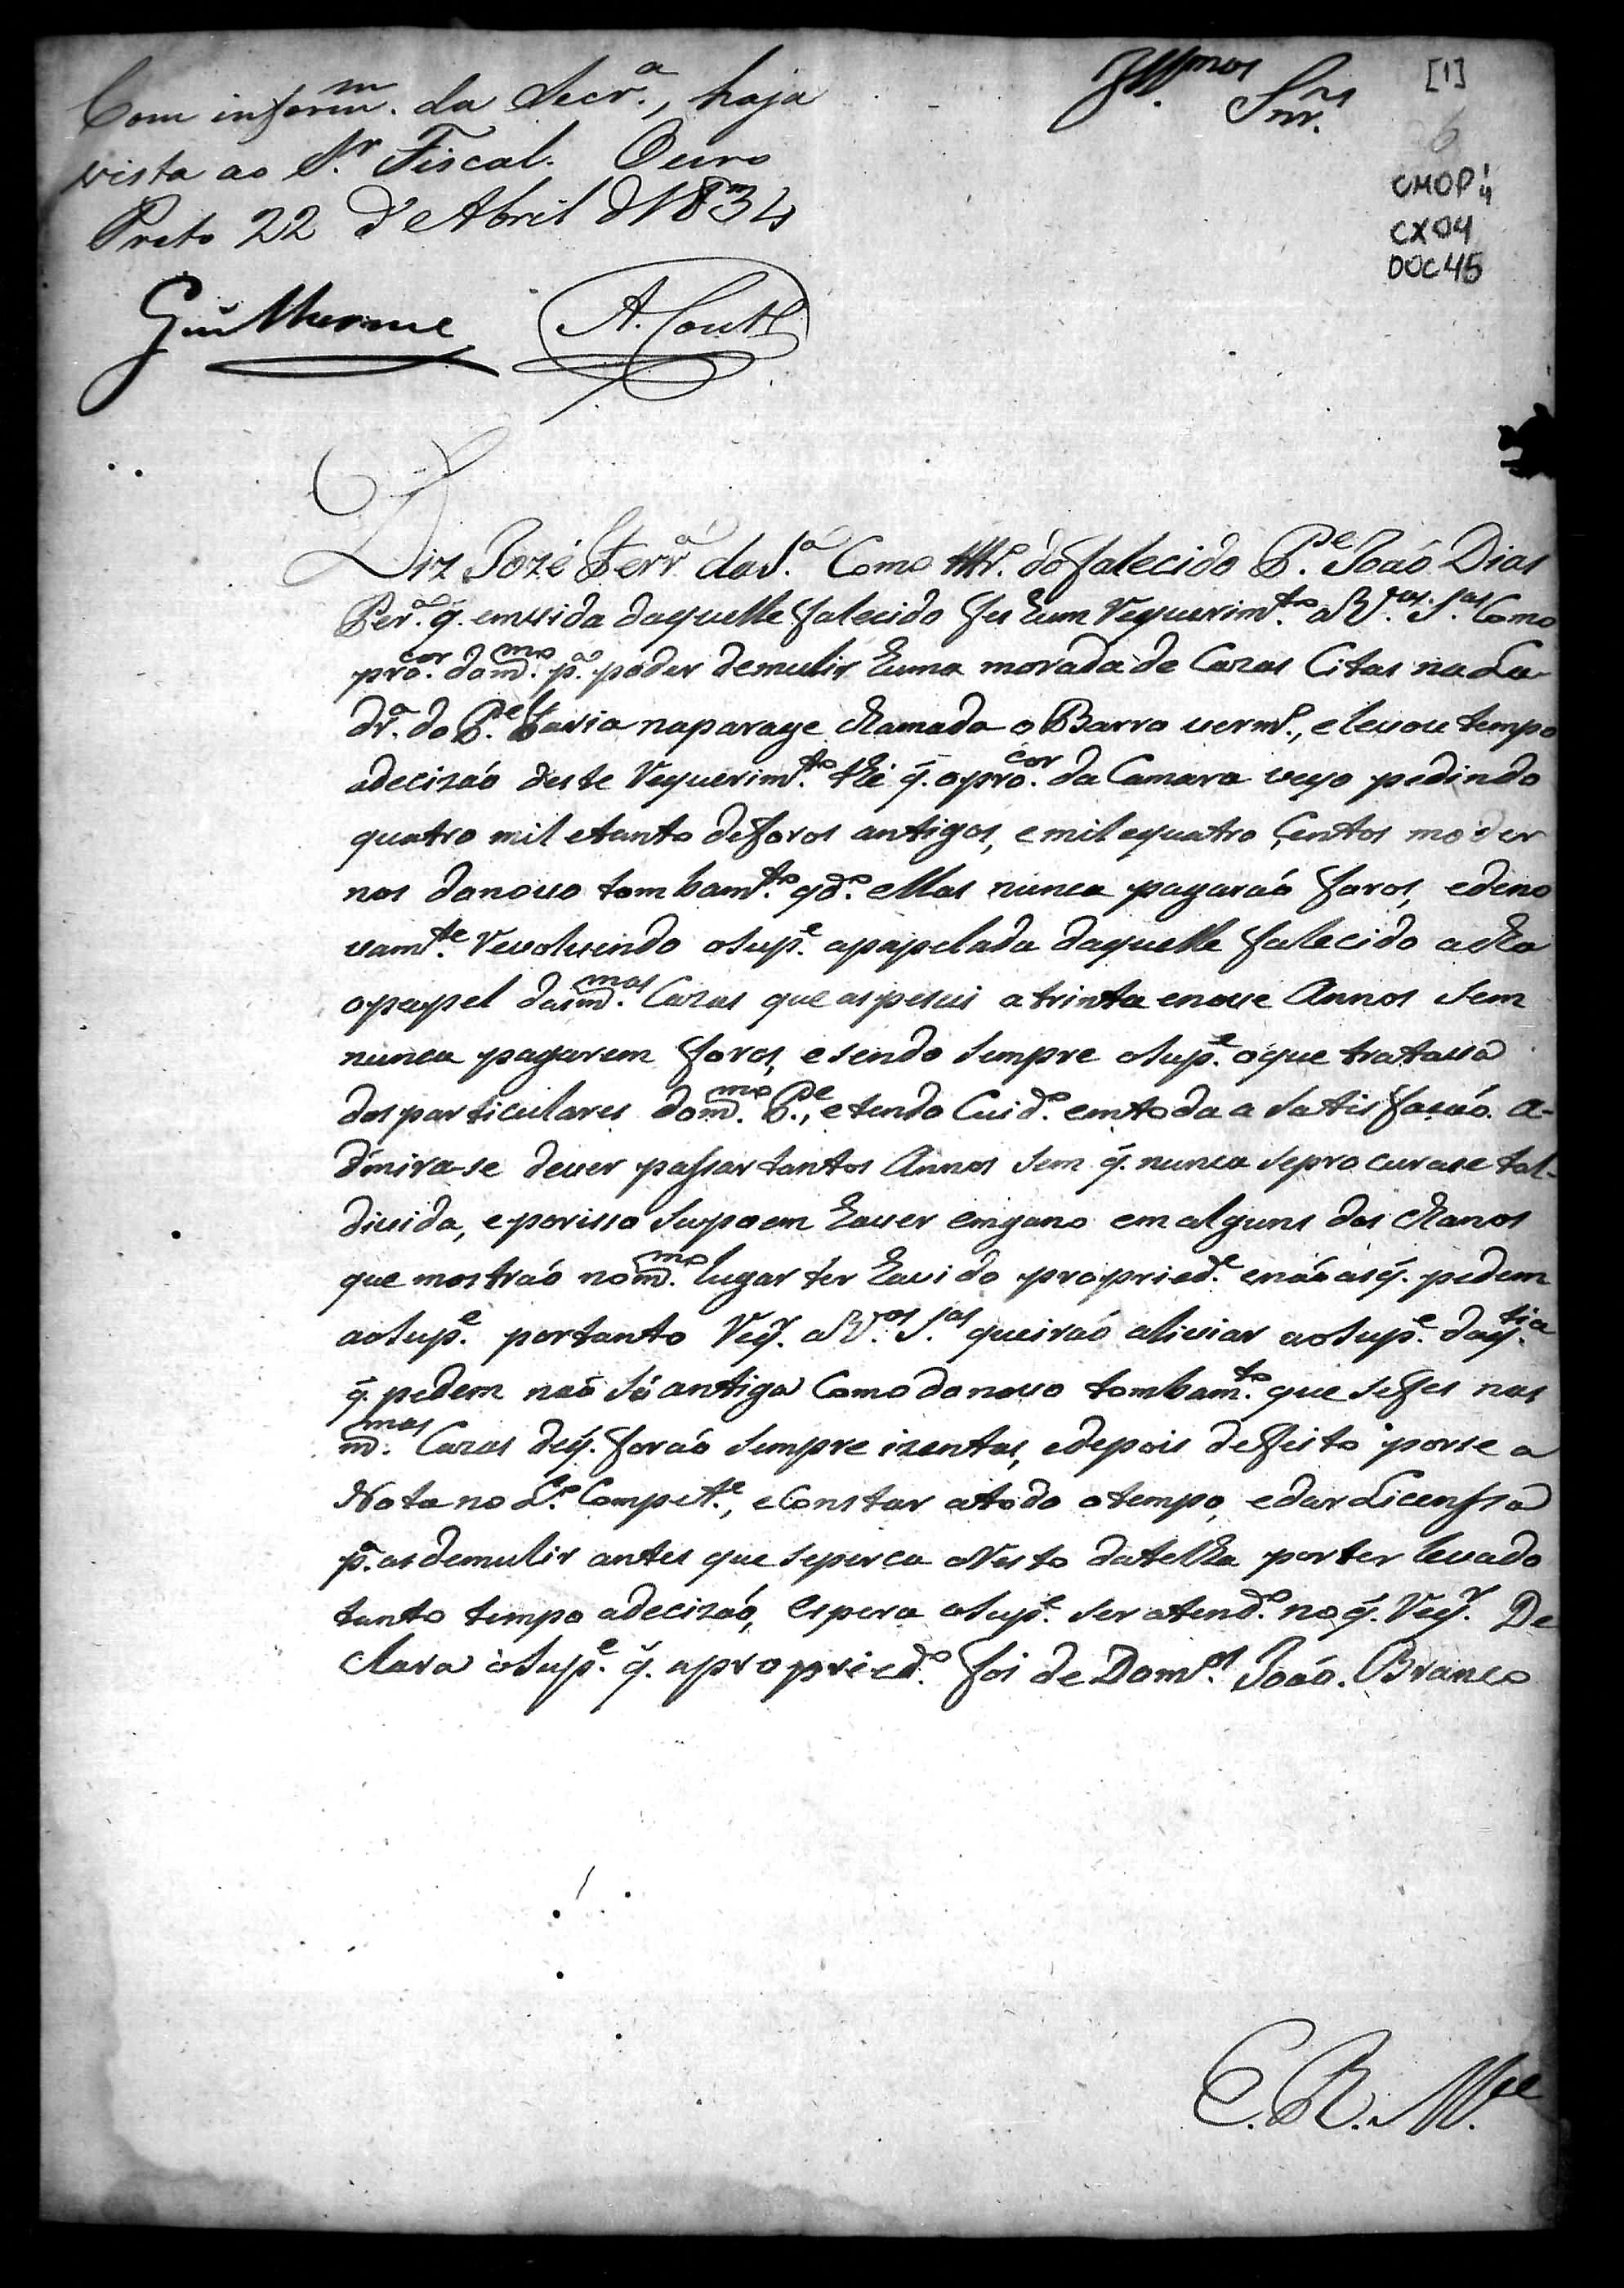 Com inform.m da Secr.a, haja
vista ao S.r Fiscal. Ouro
Preto 22 d'Abril d 1834
Guilherme A. Cout.o
Ill.mos Snr.s
[1]
CMOP 1/4
CX04
DOC45
Diz Jozé Ferr.a da S.a Como do falecido P.e Joaó Dias
Per.a q. em vida daquelle falecido fes hum Requerim.to a V.as S.as Como
pro.cor do m.mo p.a poder demulir huma morada de Cazas Citas na La-
dr.a do P.e Faria na parage chamada o Barro verm.o, e levou tempo
a decizaó deste Requerim.to the q. o pro.cor da Camara veyo pedindo
quatro mil e tanto de foros antigos, e mil e quatro Centos moder
nos do novo tombam.to q.do ellas nunca pagaraó foros, e de no
vam.te Revolvendo o Sup.e a papelada daquelle falecido acha
o papel das m.mas Cazas que as pesuis a trinta e nove Annos sem
nunca pagarem foros, e sendo sempre o Sup.e o que tratava
dos particulares do m.mo P.e, e tendo Cuid.o em toda a satisfasaó. a-
dmira-se dever passar tantos Annos sem q. nunca se procurase tal-
divida, e por isso supoem haver emgano em alguns dos chanos
que mostraó no m.mo lugar ter havido propried.e e náo as q. pedem
ao Sup.e portanto Req.r a V.as S.as queiraó aliviar ao Sup.e da q.tia
q. pedem naó só antiga Como do novo tombam.to que se fes nas
m.mas Cazas de q. foraó sempre izentas, e depois de feito porse a
Nota no L.o Compet.e, e Constar a todo o tempo, e dar Licenssa
p.a as demulir antes que se perca o Resto da telha por ter levado
tanto tempo a decizaó, espera o Sup.e ser atend.o no q. Req.r De
clara o Sup.e q. a propried.e foi de Dom.os Joaó. Branco
E. R. M.ce